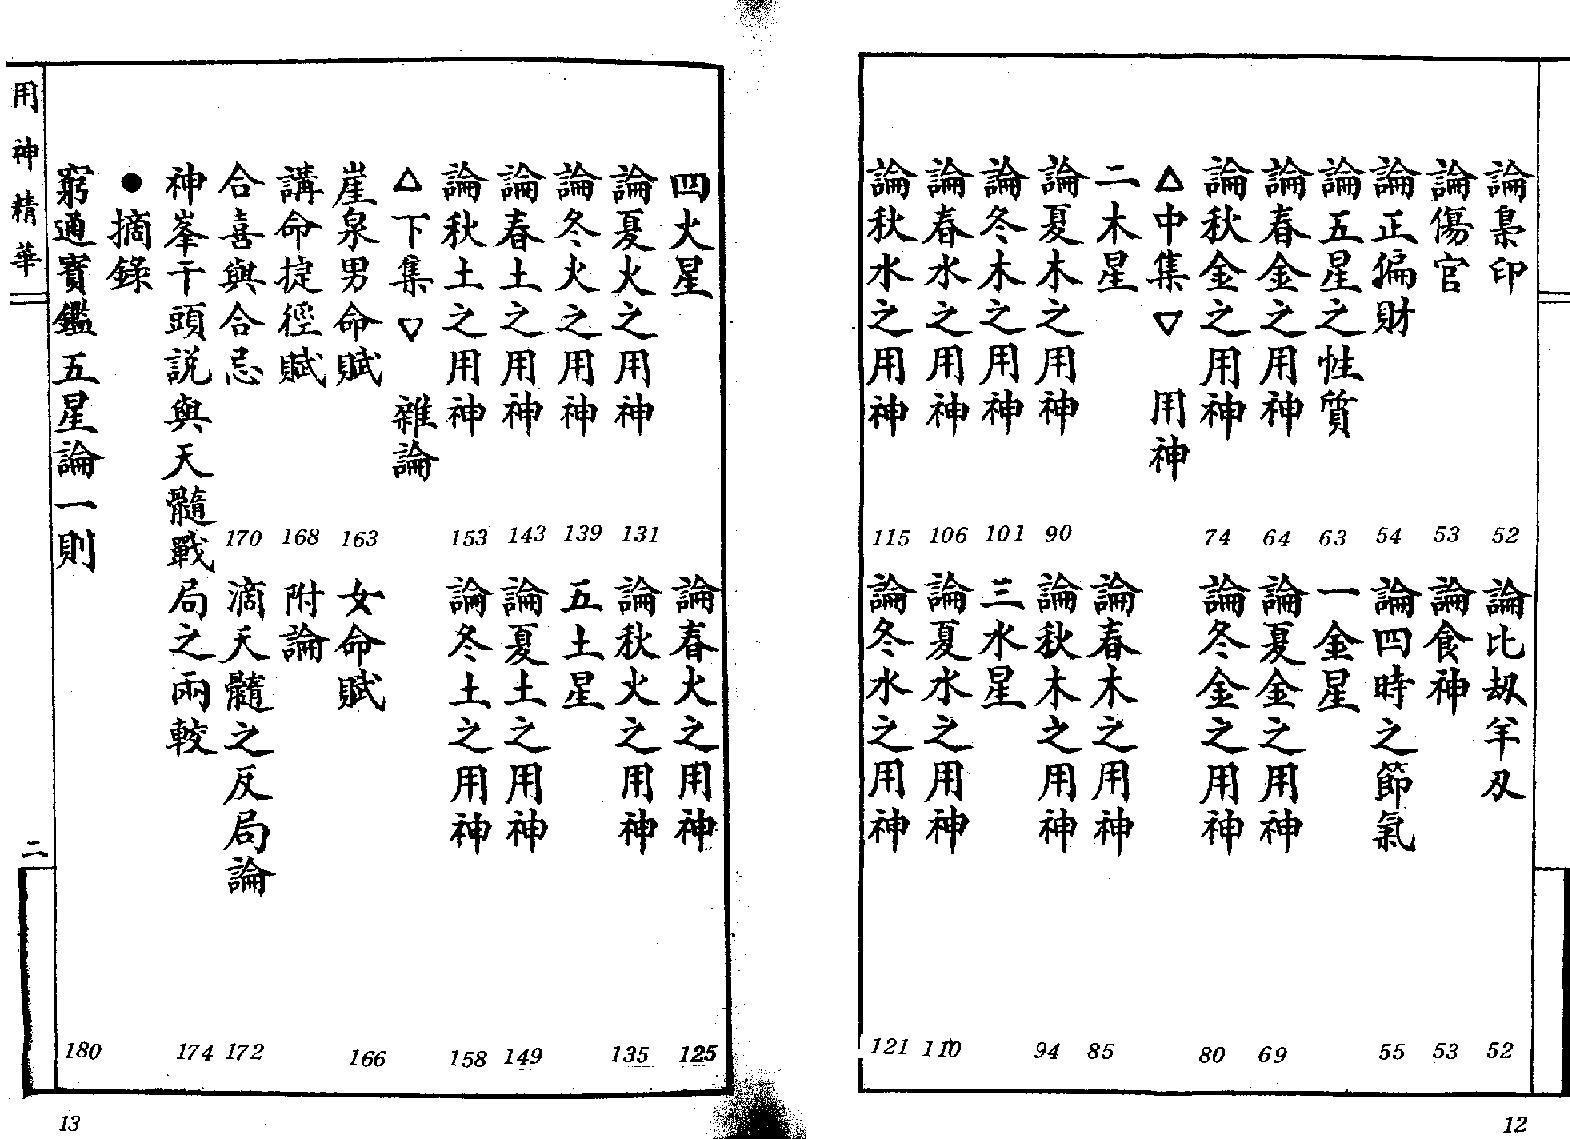 論梟印 52 論比劫羊刃 52
論傷官 53 論食神 53
論正偏財 54 論四時之節氣 55
論五星之性質 63 一金星
論春金之用神 64 論夏金之用神 69
論秋金之用神 74 論冬金之用神 80
△中集▽ 用神
二木星 論春木之用神 85
論夏木之用神 90 論秋木之用神 94
論冬木之用神 101 三水星
論春水之用神 106 論夏水之用神 110
論秋水之用神 115 論冬水之用神 121
12
四火星 論春火之用神 125
論夏火之用神 131 論秋火之用神 135
論冬火之用神 139 五土星
論春土之用神 143 論夏土之用神 149
論秋土之用神 153 論冬土之用神 158
△下集▽ 雜論
崖泉男命賦 163 女命賦 166
講命捷徑賦 168 附論
合喜與合忌 170 滴天髓之反局論 172
神峯干頭説與天髓戰局之兩較 174
●摘錄
窮通寶鑑五星論一則 180
用神精華 二
13